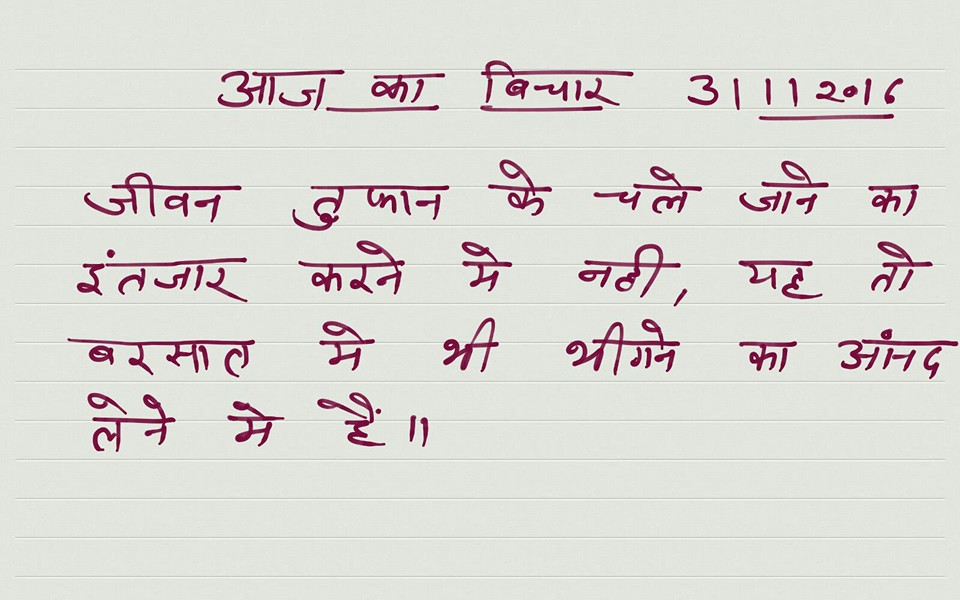 आज का बिचार 3।11२०1६
जीवन तुफान के चले जाने का
इंतजार करने मे नही, यह तो
बरसात मे भी भीगने का आंनद
लेने मे हैं॥